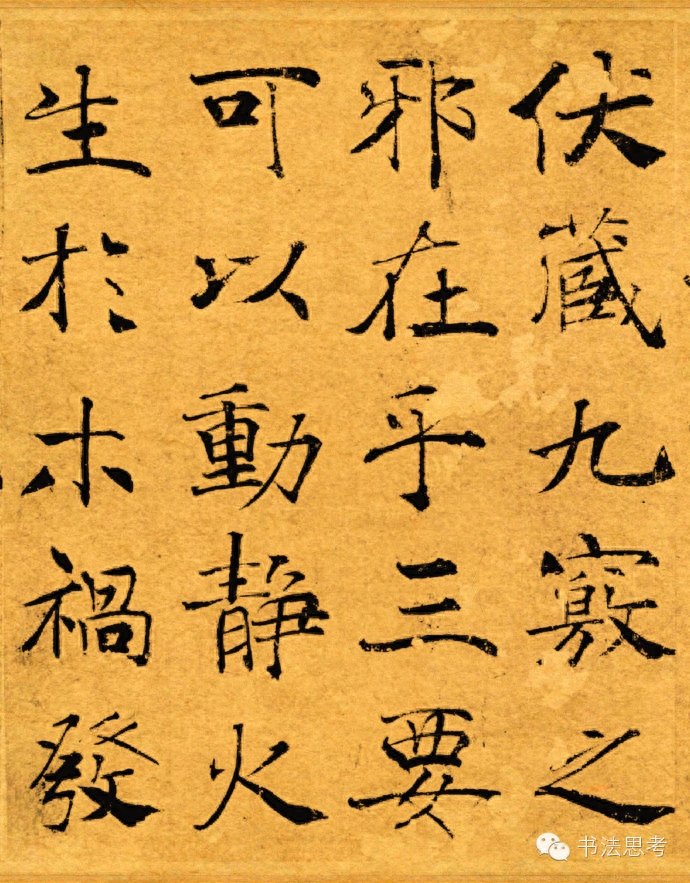 伏藏九竅之
邪在乎三要
可以動靜火
生於木禍發
书法思考